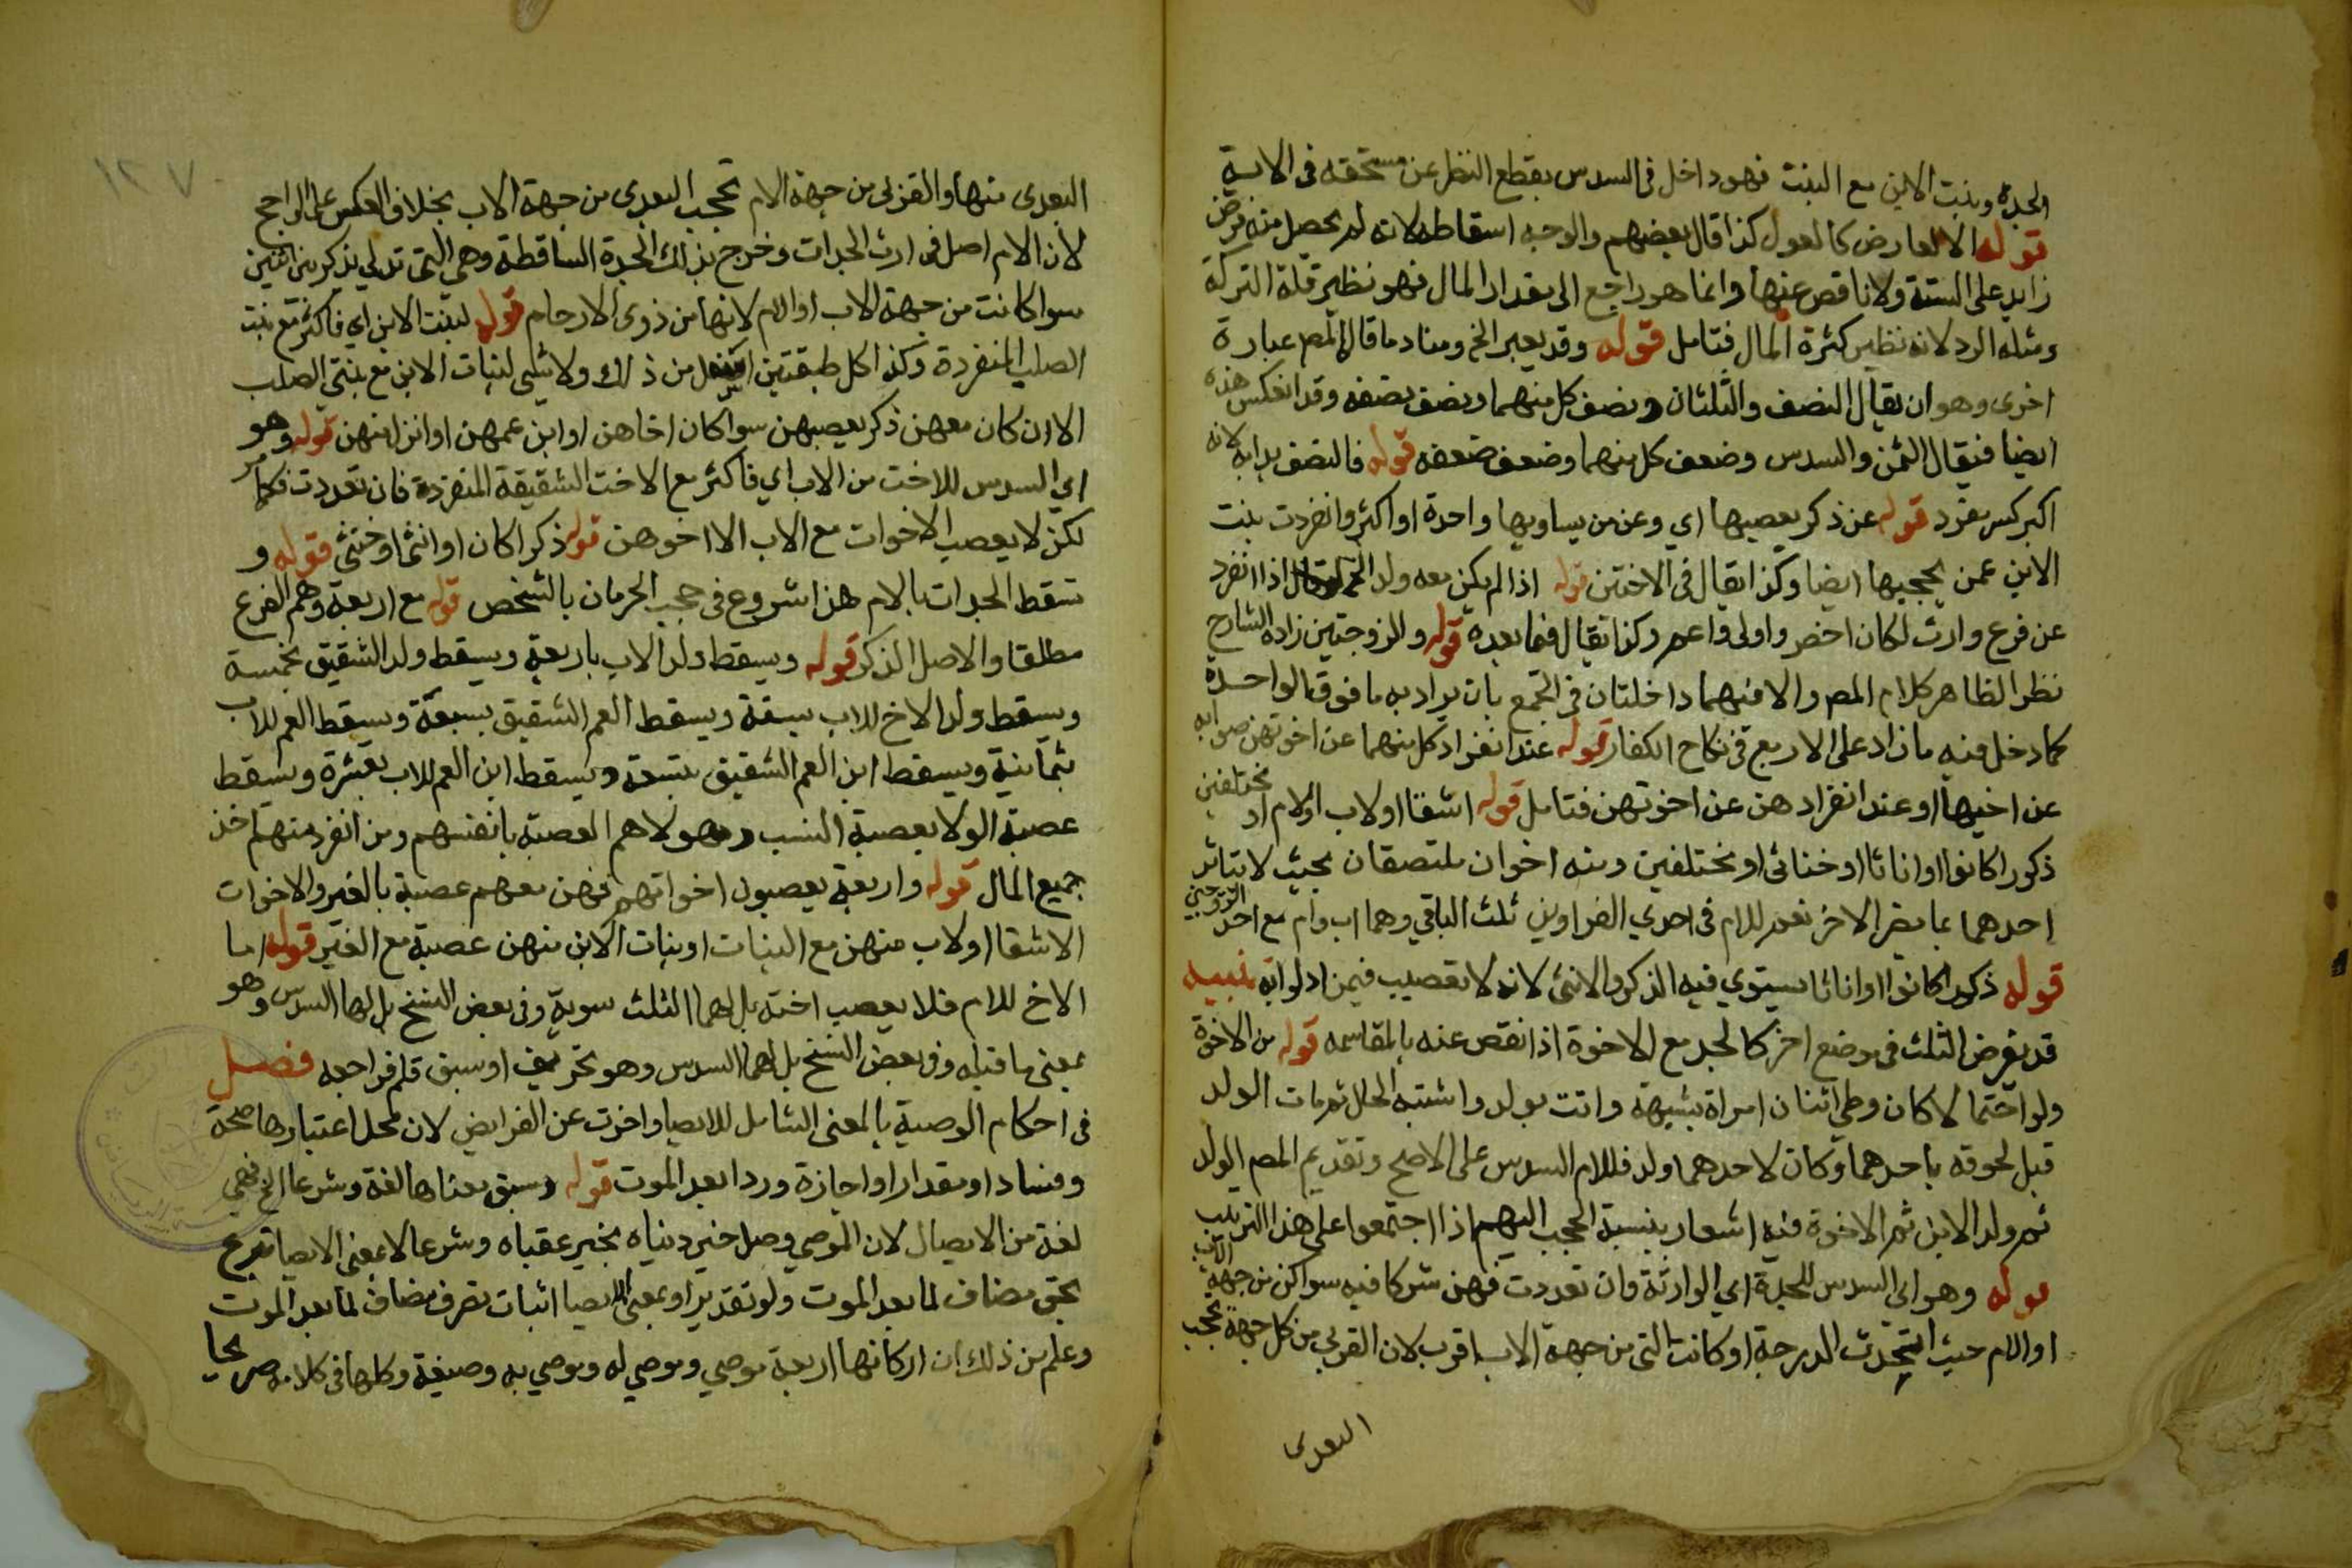 الجدة وبنت الابن مع البنت فهو داخل في السدس بقطع النظر عن مستحقه في الاية
قوله الا لعارض كالعول كذا قال بعضهم والوجه اسقاطه لانه لم يحصل منه فرض
زايد على الستة ولا ناقص عنها وانما هو راجع الى مقدار المال فهو نظير قلة التركة
ومثله الرد لانه نظير كثرة المال فتامل قوله وقد يعبر الخ ومفاد ما قاله المص عبارة
اخرى وهو ان يقال النصف والثلثان ونصف كل منهما ونصف نصفه وقد انعكس هذه
ايضا فيقال الثمن والسدس وضعف كل منهما وضعف ضعفه قوله فالنصف بدا به لانه
اكبر كسر مفرد قوله عن ذكر يعصبها اي وعن من يساويها واحدة او اكثر وانفردت بنت
الابن عمن يحجبها ايضا وكذا يقال في الاختين قوله اذا لم يكن معه ولد الخ اذا انفرد
عن فرع وارث لكان اخصر واولى واعم وكذا يقال فيما بعده قوله والزوجتين زاده الشارح
نظرا لظاهر كلام المص والا فهما داخلتان في الجمع بان يراد به ما فوق الواحدة
كما دخل فيه ما زاد على الاربع في نكاح الكفار قوله عند انفراد كل منهما عن اخوتهن صوابه
عن اخيها او عند انفرادهن عن اخوتهن فتامل قوله اشقا او لاب او لام او مختلفين
ذكورا كانوا او اناثا او خناثى او مختلفين ومنه اخوان ملتصقان بحيث لا يتاثر
احدهما بما يضر الاخر نعم للام في احدي الغراوين ثلث الباقي وهما اب وام مع احد الزوجين
قوله ذكورا كانوا او اناثا يستوي فيه الذكر والانثى لانه لا تعصيب فيمن ادلوا به تنبيه
قد يفرض الثلث في موضع اخر كالجد مع الاخوة اذا نقص عنه بالمقاسمه قوله من الاخوة
ولو احتمالا كان وطي اثنان امراة بشبهة واتت بولد واشتبه الحال ثم مات الولد
قبل لحوقه باحدهما وكان لاحدهما ولد فللام السدس على الاصح وتقديم المص الولد
ثم ولد الابن ثم الاخوة فيه اشعار بنسبة الحجب اليهم اذا اجتمعوا على هذا الترتيب
قوله وهو اي السدس للجدة اي الوارثة وان تعددت فهن شركا فيه سوا كن من جهة الاب
او الام حيث اتحدت الدرجة او كانت التي من جهة الاب اقرب لان القربى من كل جهة تحجب
البعدى
البعدى منها والقربى من جهة الام تحجب البعدى من جهة الاب بخلاف العكس على الراجح
لان الام اصل في ارث الجدات وخرج بذلك الجدة الساقطة وهي التي تدلي بذكر بين انثيين
سوا كانت من جهة الاب او الام لانها من ذوى الارحام قوله لبنت الابن اي فاكثر مع بنت
الصلب المنفردة وكذا كل طبقتين من ذلك ولا شي لبنات الابن مع بنتي الصلب
الا ان كان معهن ذكر يعصبهن سوا كان اخاهن او ابن عمهن او انزل منهن قوله وهو
اي السدس للاخت من الاب اي فاكثر مع الاخت الشقيقة المنفردة فان تعددت فكما مر
لكن لا يعصب الاخوات مع الاب الا اخوهن قوله ذكرا كان او انثى او خنثى قوله و
تسقط الجدات بالام هذا شروع في حجب الحرمان بالشخص قوله مع اربعة وهم الفرع
مطلقا والاصل الذكر قوله ويسقط ولد الاب باربعة ويسقط ولد الشقيق بخمسة
ويسقط ولد الاخ للاب بستة ويسقط العم الشقيق بسبعة ويسقط العم للاب
بثمانية ويسقط ابن العم الشقيق بتسعة ويسقط ابن العم للاب بعشرة ويسقط
عصبة الولا بعصبة النسب وهولا هم العصبة بانفسهم ومن انفرد منهم اخذ
جميع المال قوله واربعة يعصبون اخواتهم فهن معهم عصبة بالغير والاخوات
الاشقا او لاب منهن مع البنات او بنات الابن منهن عصبة مع الغير قوله اما
الاخ للام فلا يعصب اخته بل لهما الثلث سوية وفي بعض النسخ بل لها السدس وهو
بمعنى ما قبله وفي بعض النسخ بل لهما السدس وهو تحريف او سبق قلم فراجعه فصل
في احكام الوصية بالمعنى الشامل للايصا واخرت عن الفرايض لان محل اعتبارها صحة
وفسادا ومقدارا واجازة وردا بعد الموت قوله وسبق معناها لغة وشرعا الخ فهي
لغة من الايصال لان الموصي وصل خير دنياه بخير عقباه وشرعا لا بمعنى الايصا تبرع
بحق مضاف لما بعد الموت ولو تقديرا وبمعنى الايصا اثبات تصرف مضاف لما بعد الموت
وعلم من ذلك ان اركانها اربعة موصي وموصي له وموصي به وصيغة وكلها في كلامه صريحا